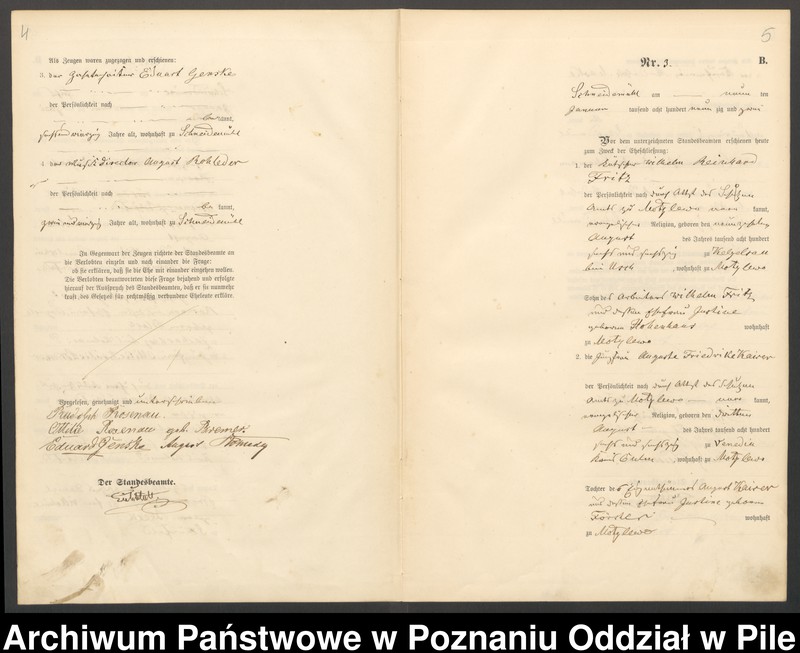 4
Als Zeugen waren zugezogen und erschienen:
3. der Eduart Genske
der Persönlichkeit nach
be kannt,
Jahre alt, wohnhaft zu Schneidemühl
4. der Musikdirector August
der Persönlichkeit nach
be kannt,
Jahre alt, wohnhaft zu Schneidemühl
In Gegenwart der Zeugen richtete der Standesbeamte an
die Verlobten einzeln und nach einander die Frage:
ob sie erklären, daß sie die Ehe mit einander eingehen wollen.
Die Verlobten beantworteten diese Frage bejahend und erfolgte
hierauf der Ausspruch des Standesbeamten, daß er sie nunmehr
kraft des Gesetzes für rechtmäßig verbundene Eheleute erkläre.
Vorgelesen, genehmigt und unterschrieben
Rudolph Rosenau.
Rosenau geb. Bremer.
Eduard Genske August
Der Standesbeamte.
5
Nr. 3. B.
Schneidemühl am neun ten
Januar tausend acht hundert neun zig und zwei
Vor dem unterzeichneten Standesbeamten erschienen heute
zum Zweck der Eheschließung:
1. der Kutscher Wilhelm Reinhard
Fritz
der Persönlichkeit nach durch Attest des Schulzen
Amts zu Motylewo kannt,
evangelischer Religion, geboren den neunzehnten
August des Jahres tausend acht hundert
sechs und sechszig zu
bei Usch, wohnhaft zu Motylewo
Sohn des Arbeiters Wilhelm Fritz
und dessen Ehefrau Justine
geboren wohnhaft
zu Motylewo
2. die Jungfrau Auguste Friedrike Kaiser
der Persönlichkeit nach durch Attest des Schulzen
Amts zu Motylewo kannt,
evangelischer Religion, geboren den dritten
August des Jahres tausend acht hundert
sechs und sechszig zu Venedia
wohnhaft zu Motylewo
Tochter des Eigenthümers August Kaiser
und dessen Ehefrau Justine geboren
wohnhaft
zu Motylewo
Archiwum Państwowe w Poznaniu Oddział w Pile